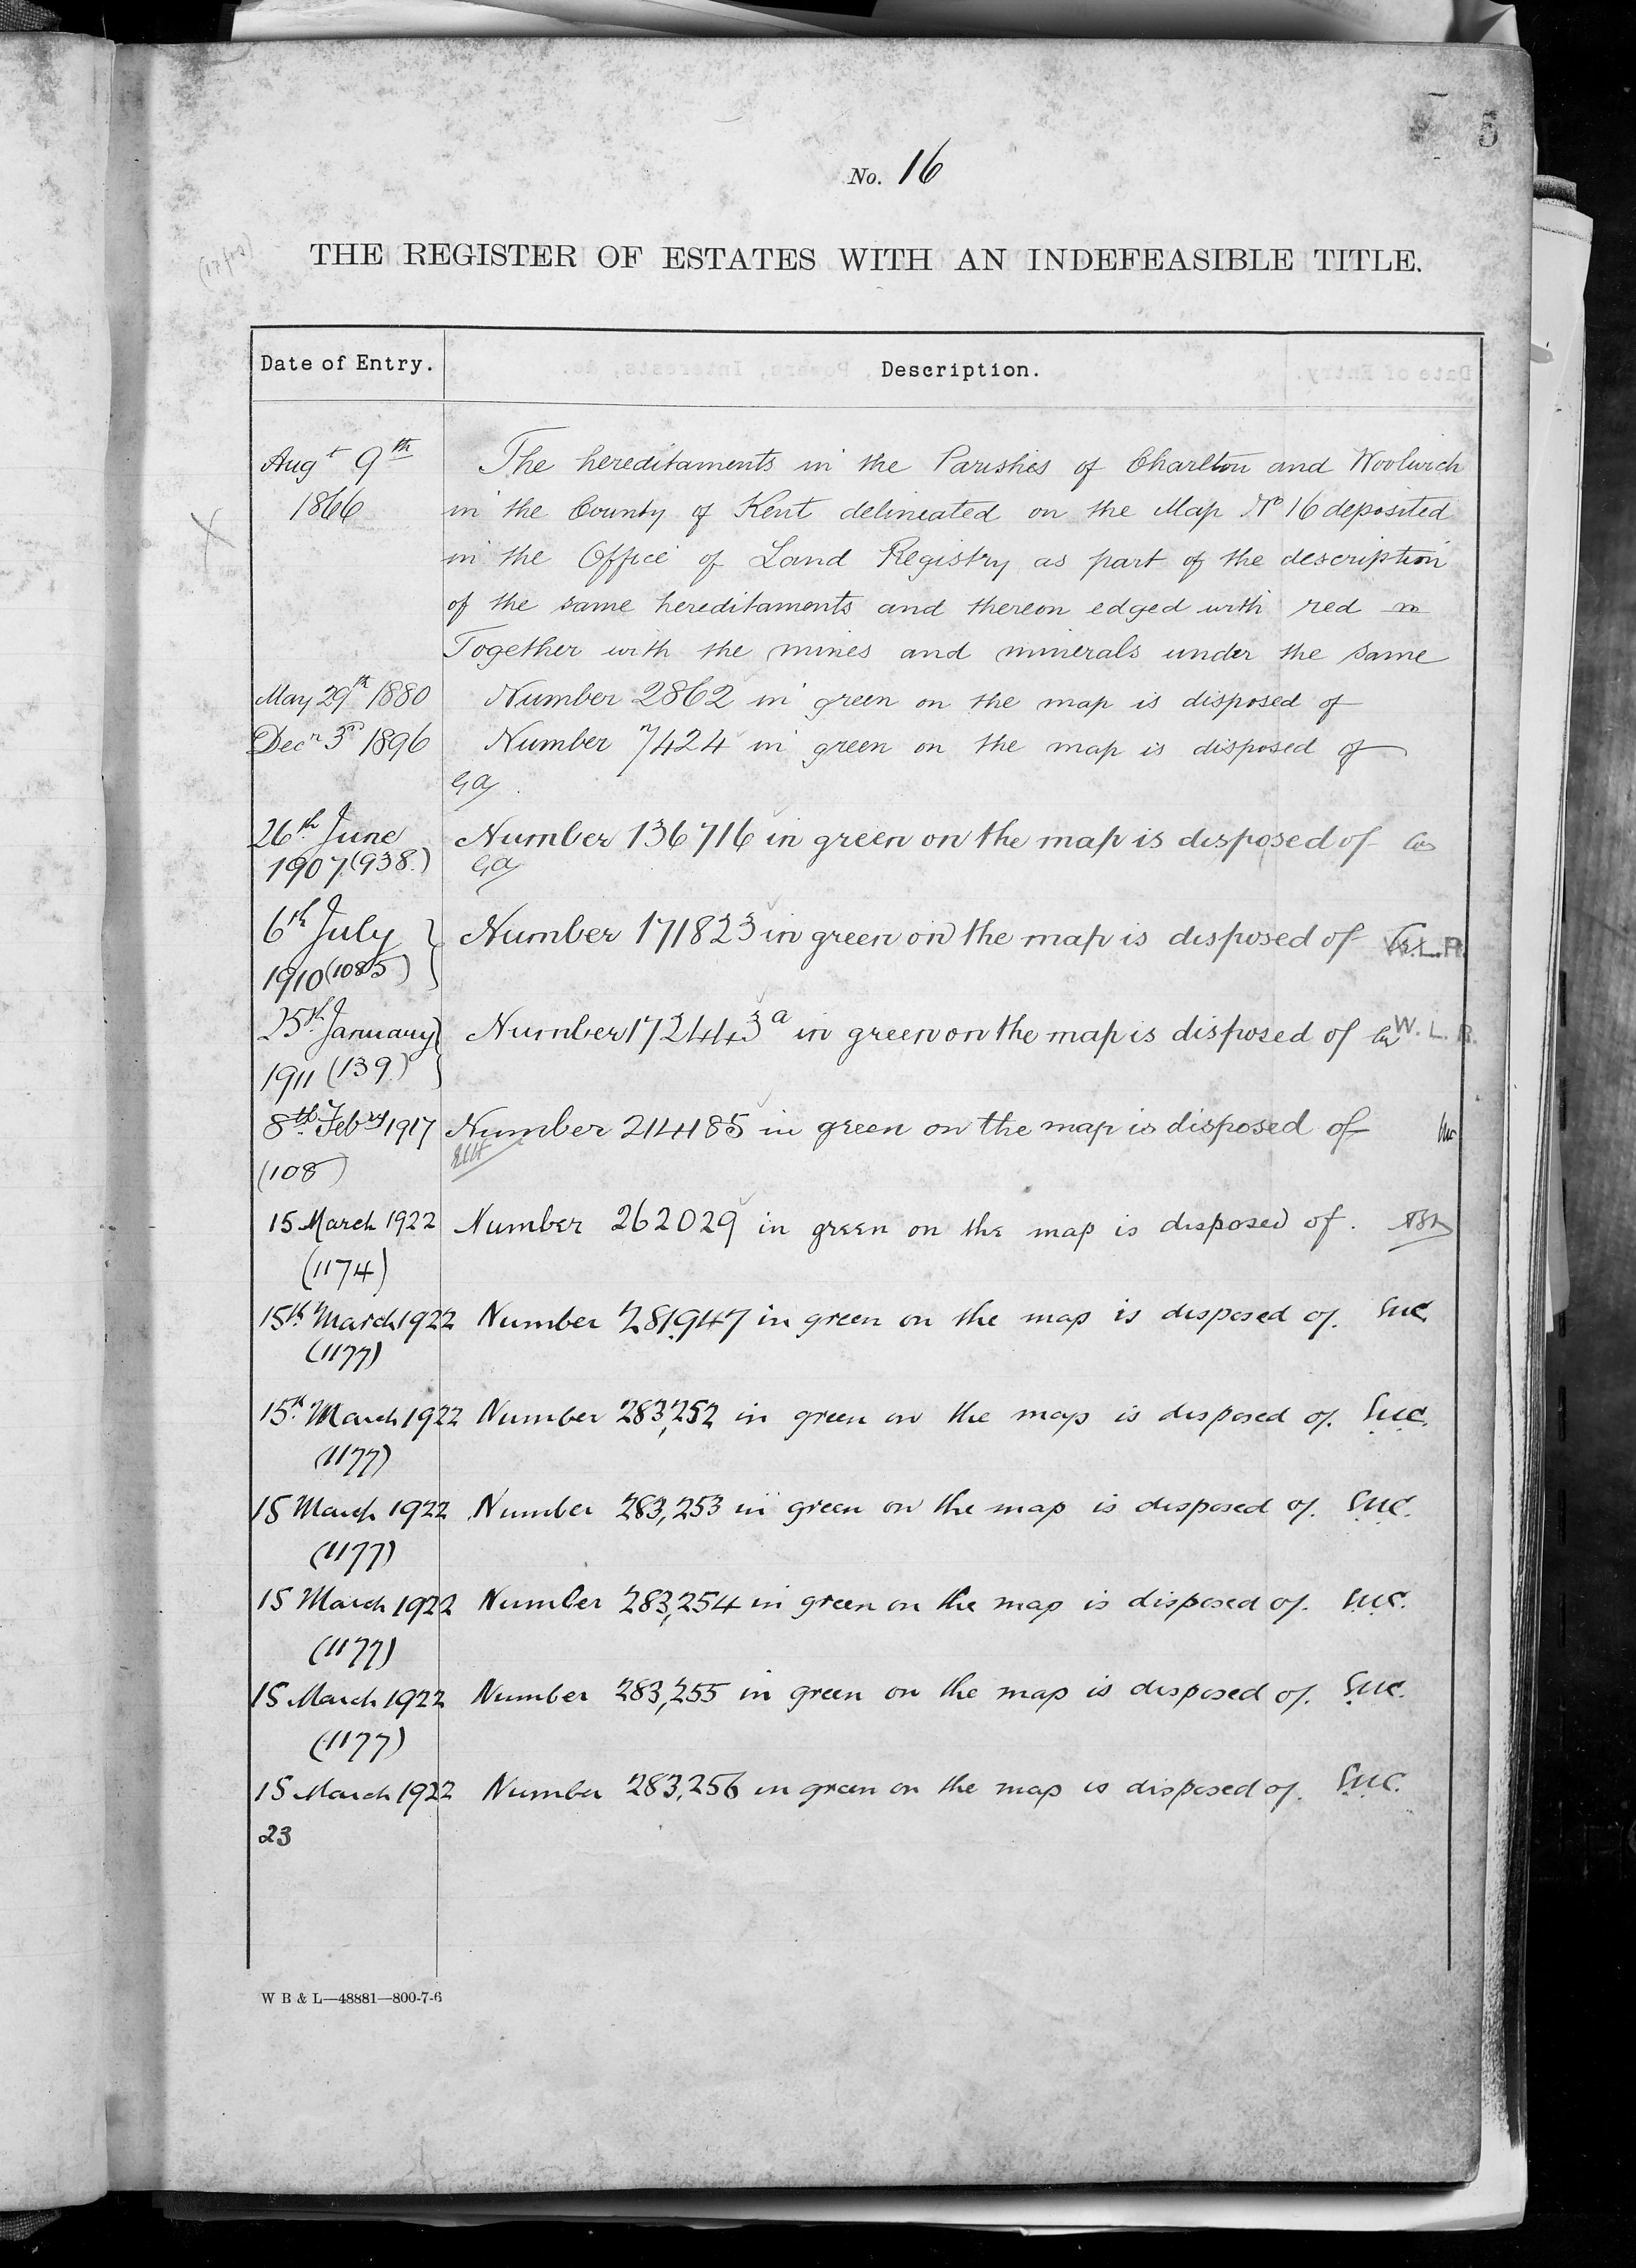 5
No. 16
THE REGISTER OF ESTATES WITH AN INDEFEASIBLE TITLE.
Date of Entry. Description.
Augt 9th The hereditaments in the Parishes of Charlton and Woolwich
1866 in the County of Kent delineated on the Map No 16 deposited
in the Office of Land Registry as part of the description
of the same hereditaments and thereon edged with red
Together with the mines and minerals under the same
May 29th 1880 Number 2862 in green on the map is disposed of
Decr 3rd 1896 Number 7424 in green on the map is disposed of
26th June Number 136716 in green on the map is disposed of
1907 (938.)
6th July Number 171823 in green on the map is disposed of W.L.R.
1910 (1085)
25th January Number 172443a in green on the map is disposed of W. L. R.
1911 (139)
8th Febry 1917 Number 214185 in green on the map is disposed of
(108)
15 March 1922 Number 262029 in green on the map is disposed of.
(1174)
15th March 1922 Number 281947 in green on the map is disposed of.
(1177)
15th March 1922 Number 283,252 in green on the map is disposed of.
(1177)
15 March 1922 Number 283,253 in green on the map is disposed of.
(1177)
15 March 1922 Number 283,254 in green on the map is disposed of.
(1177)
15 March 1922 Number 283,255 in green on the map is disposed of.
(1177)
15 March 1922 Number 283,256 in green on the map is disposed of.
23
W B & L—48881—800-7-6